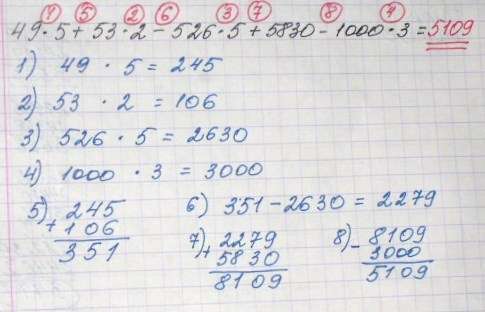 1 5 2 6 3 7 8 4
49·5+53·2-526·5+5830-1000·3=5109
1) 49 · 5 = 245
2) 53 · 2 = 106
3) 526 · 5 = 2630
4) 1000 · 3 = 3000
5) 245
+ 106
351
6) 351-2630 = 2279
7) 2279
+ 5830
8109
8) 8109
- 3000
5109